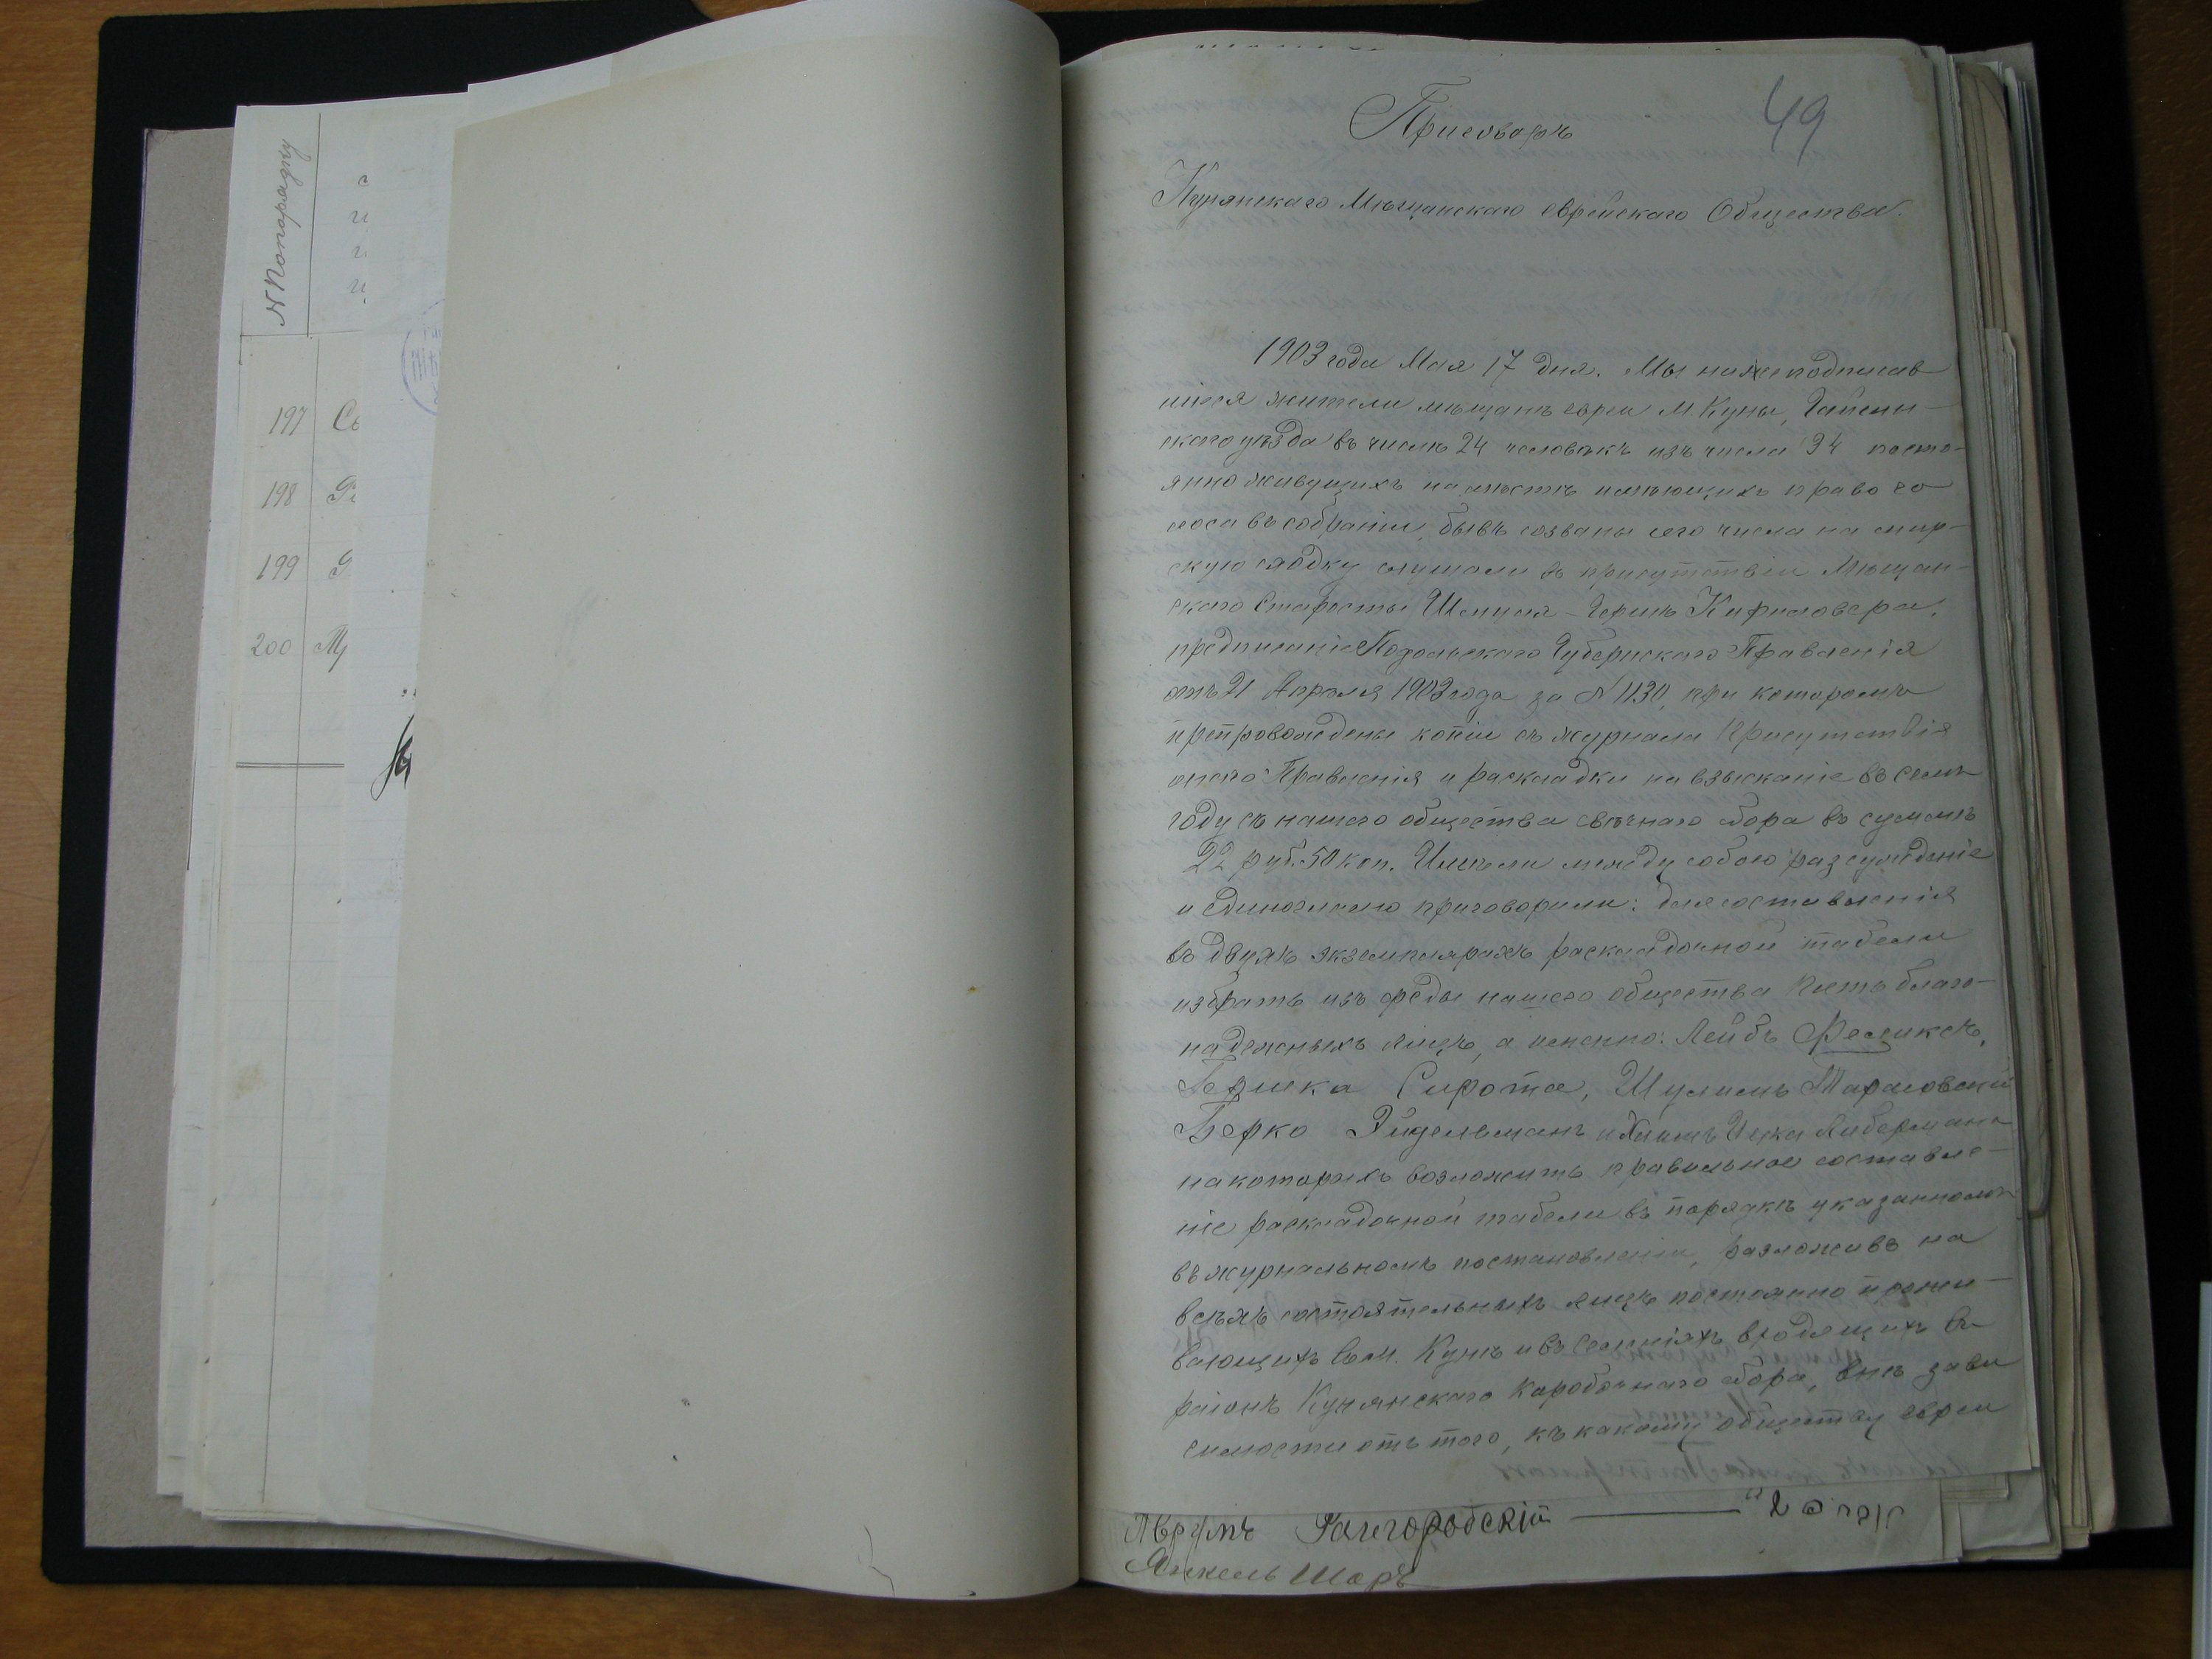 №№ по порядку
197 Се
198
199
200
49
Приговоръ
Кунянского Мѣщанского еврейского Общества.
1903 года Мая 17 дня. Мы нижеподписав
шіеся жители мѣщанъ евреи М Куны, Гайсин-
ского уѣзда въ числѣ 24 человѣкъ изъ числа 34 посто-
янно живущихъ на мѣстѣ имѣющихъ право го
лоса въ собраніи, бывъ созваны сего числа на мир-
скую сходку слушали въ присутствіи Мѣщан-
ского Старосты Шмуля-Герша
предписаніе Подольского Губернского Правленія
отъ 21 Апрѣля 1903 года за № 1130, при которомъ
препровождены копіи съ журнала Присутствія
онаго Правленія и раскладки на взысканіе въ семъ
году съ нашего общества свѣчного сбора въ суммѣ
22 руб. 50 коп. Имѣли между собою разсужденіе
и единогласно приговорили: для составленія
въ двухъ экземплярахъ раскладочной табели
избрать изъ среды нашего общества пять благо-
надежныхъ лицъ, а именно: Лейбъ Феликсъ,
Гершка Сирота, Шулимъ Тарасовскій
Берко Эйдельманъ и Хаимъ Ицка Либерманъ
на которыхъ возложить правильное составле-
ніе раскладочной табели въ порядкѣ указанномъ
въ журнальномъ постановленіи, разложивъ на
всѣхъ состоятельныхъ лицъ постоянно прожи-
вающихъ въ м. Кунѣ и въ селеніяхъ входящихъ въ
раіонъ Кунянского коробочного сбора, внѣ зави
симости отъ того, къ какому обществу евреи
Аврумъ Райгородскій — 2
Янкель Шоръ